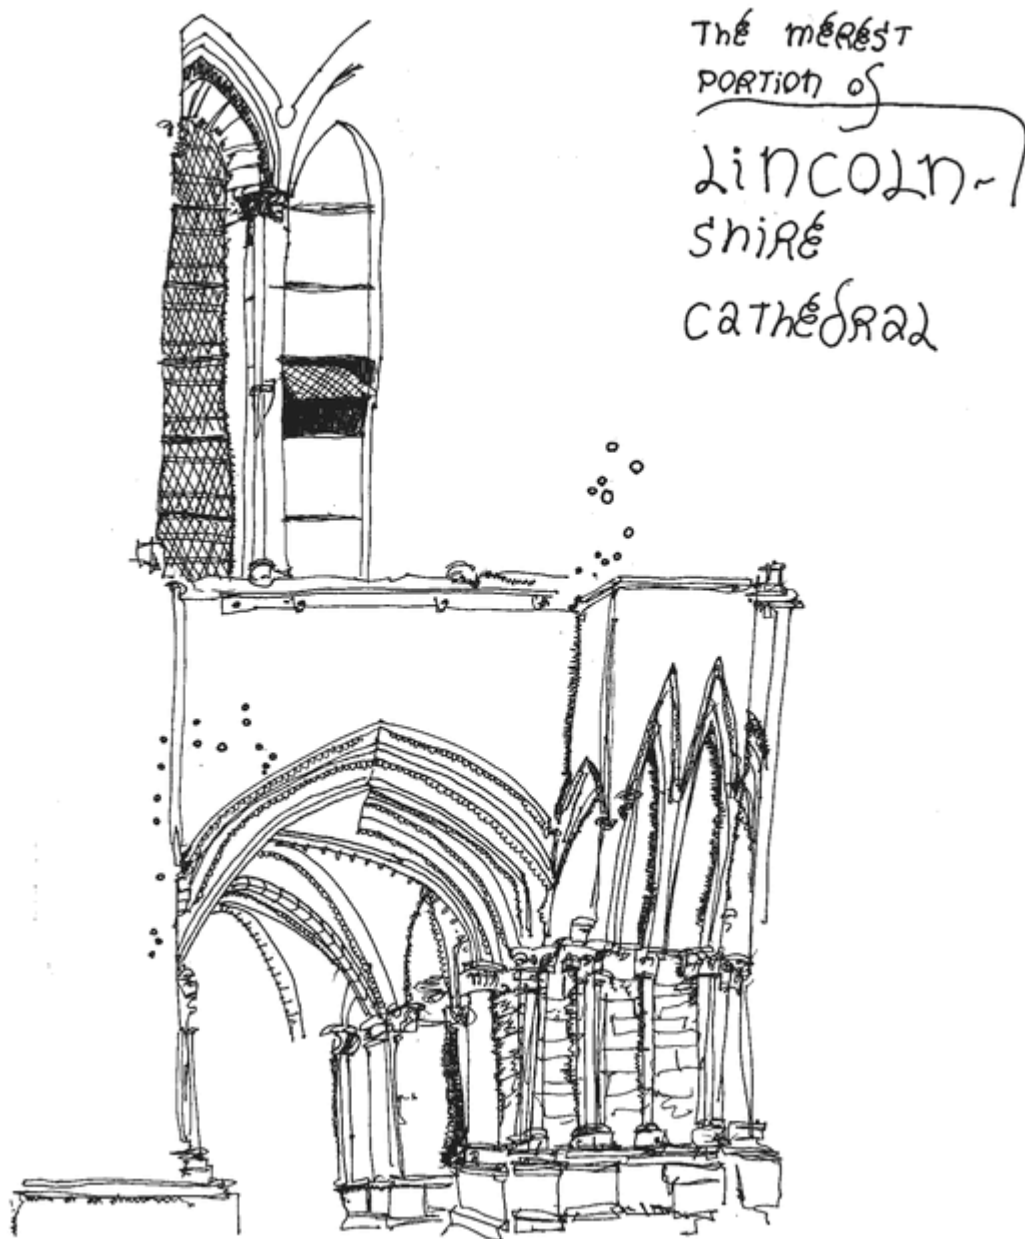 THE MEREST
PORTION OF
LINCOLN-
SHIRE
CATHEDRAL